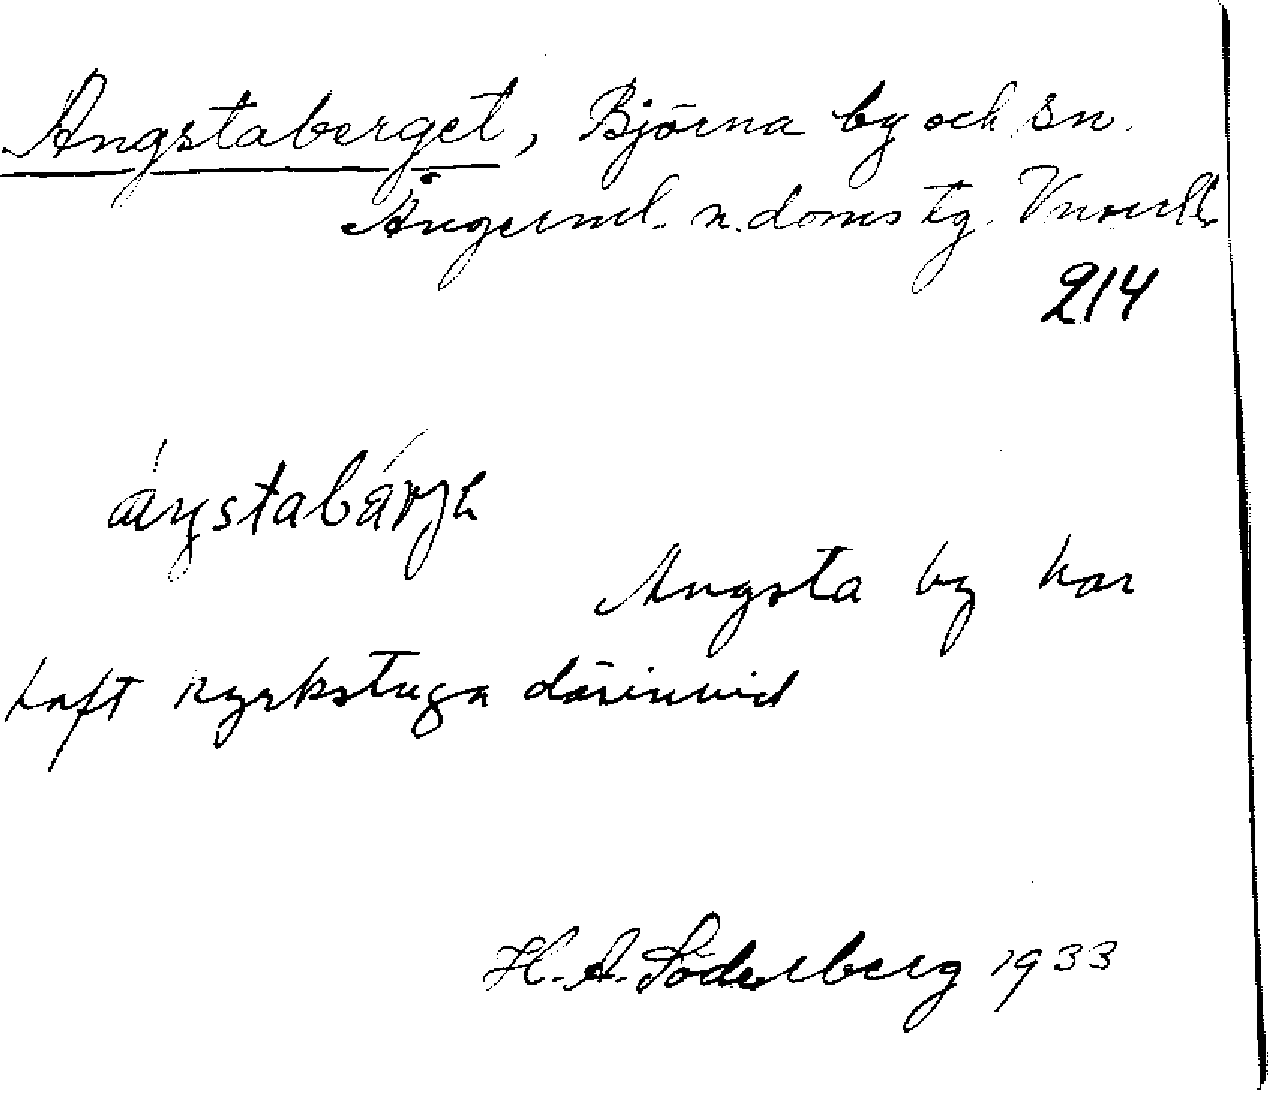 Angstaberget, Björna by och sn.
Ångerml. n. doms tg. Vnorrl.
214
Angsta by har
haft kyrkstuga därinvid
H. A. Söderberg 1933